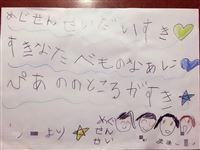 めじせんせいだいすき
すきなたべものなあに
ぴあののところがすき
より
めぐせんせい